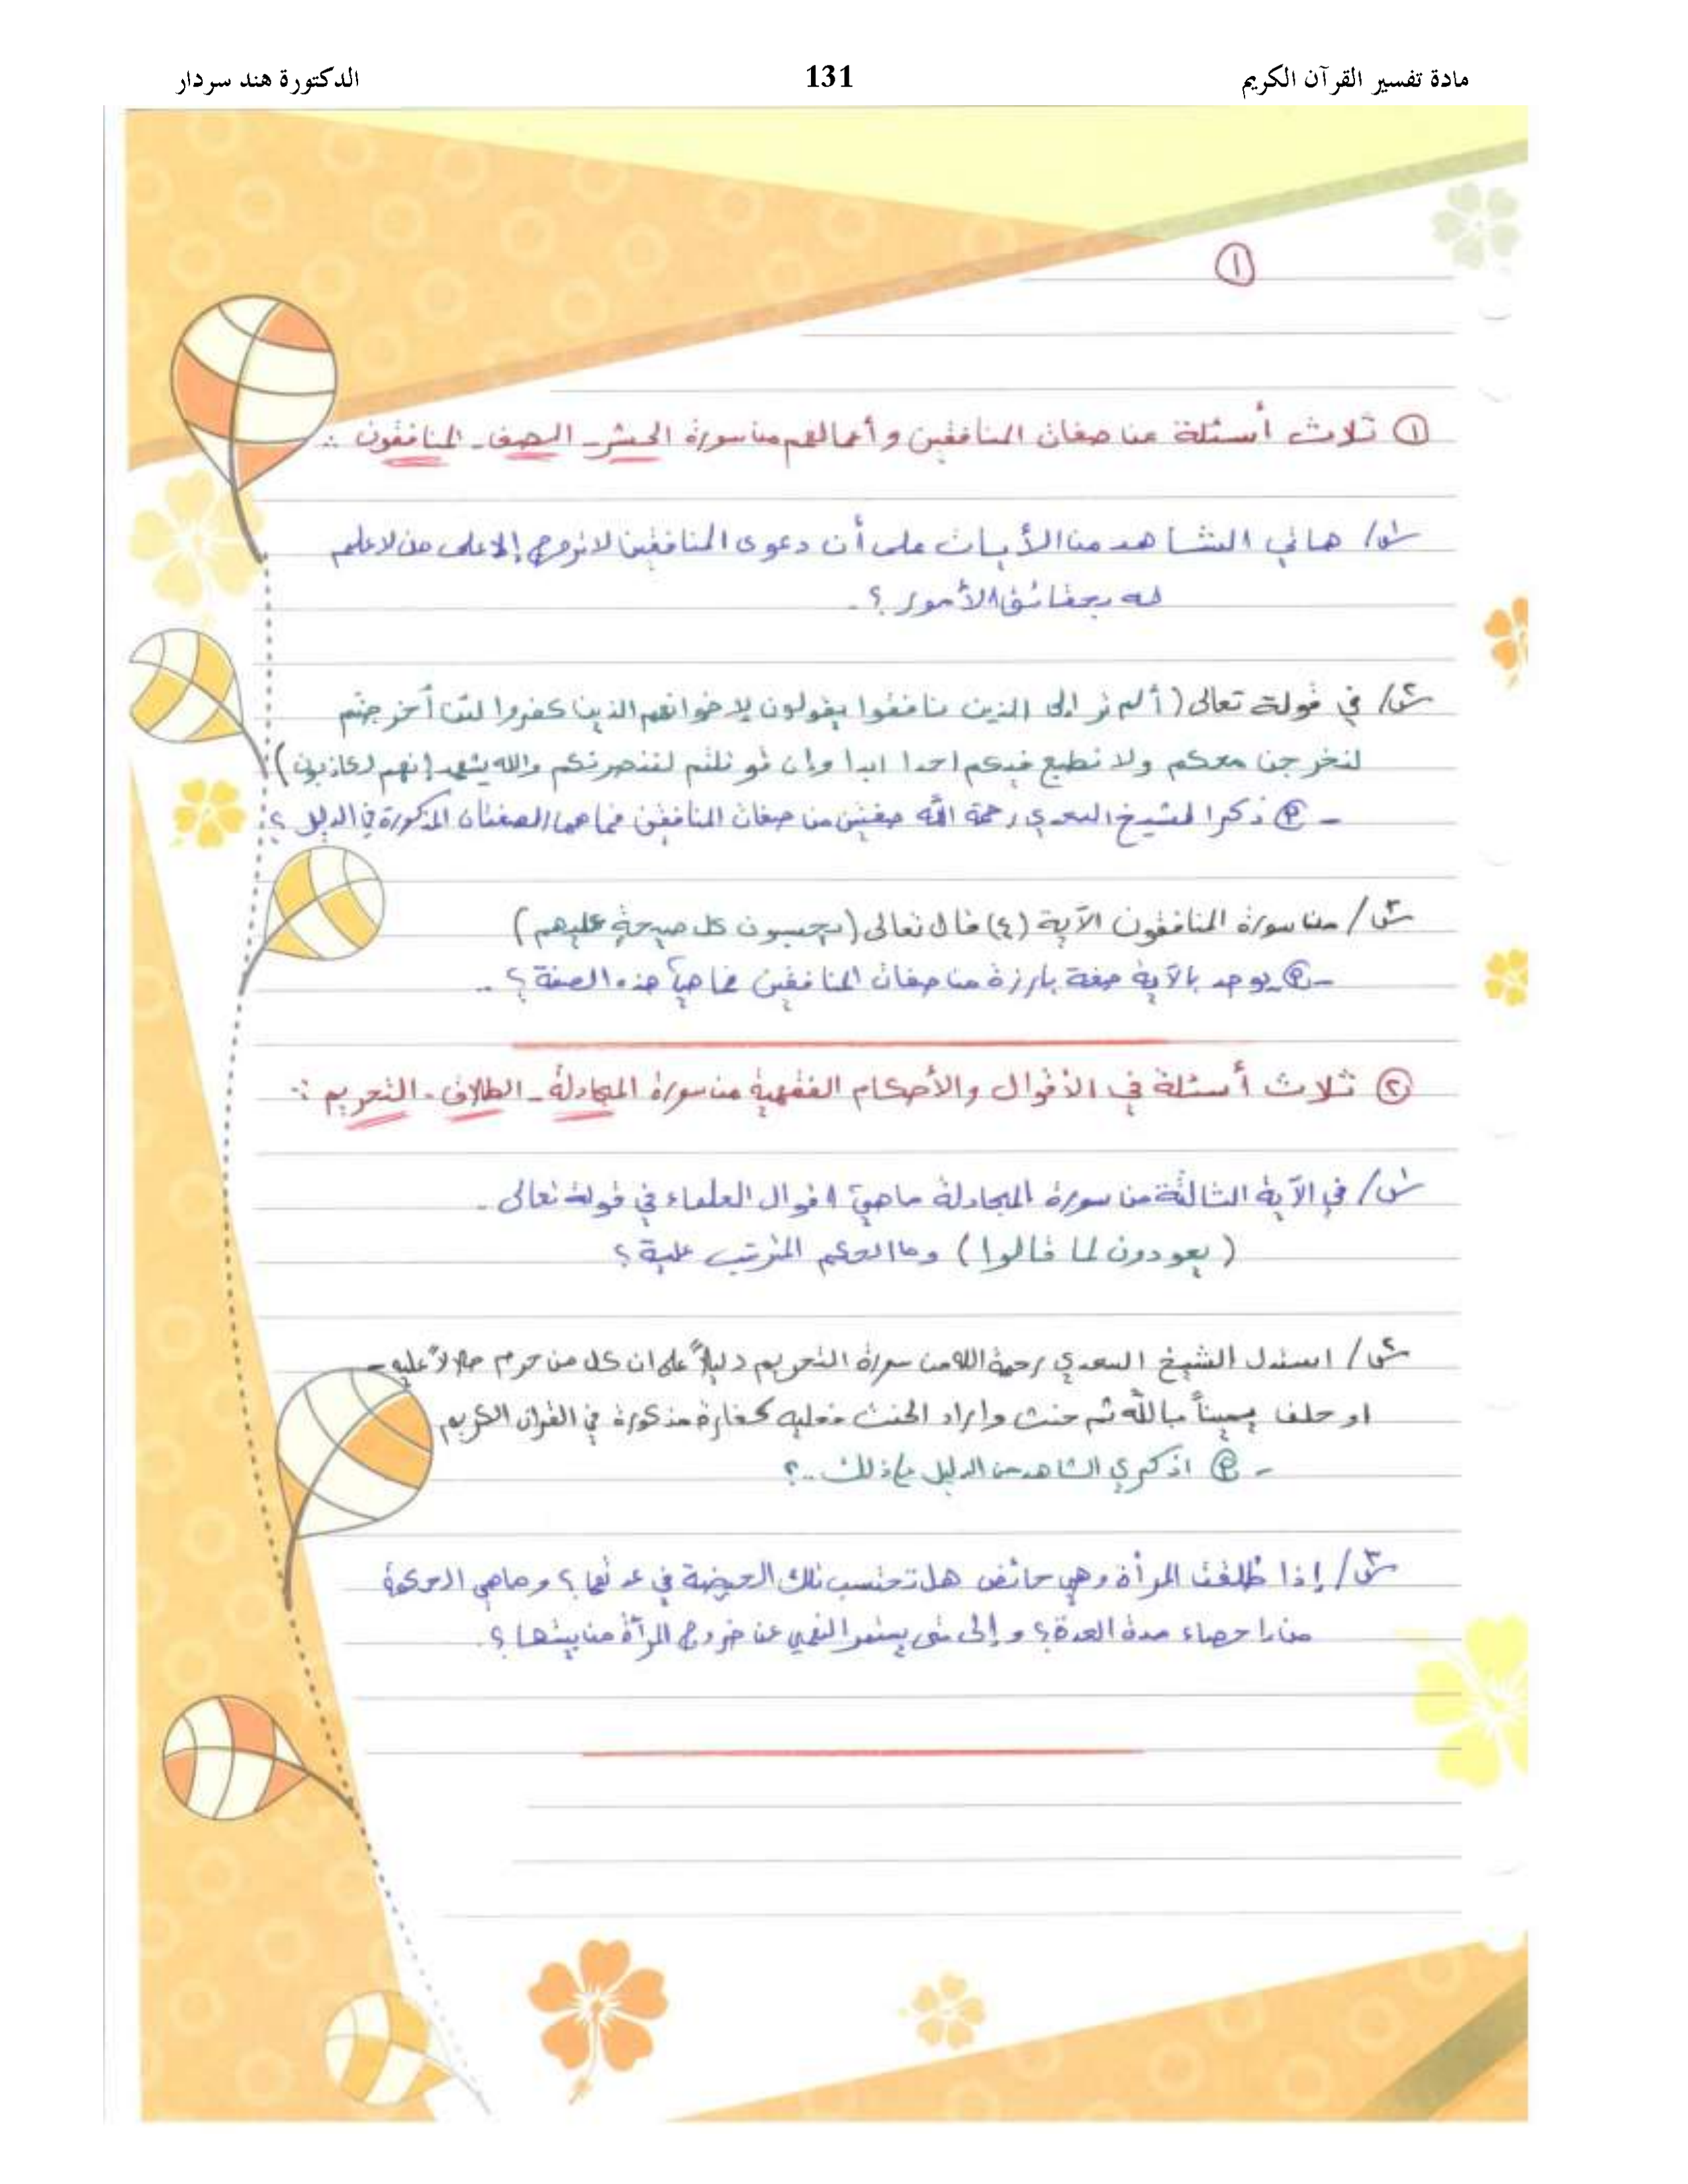 مادة تفسير القرآن الكريم
131
الدكتورة هند سردار
①
① ثلاث أسئلة عن صفات المنافقين وأعمالهم من سورة الحشر - الصف - المنافقون :-
س١/ هاتي الشاهد من الأيات على أن دعوى المنافقين لا تروج إلا على من لا علم
له بحقائق الأمور ؟.
س٢/ في قولة تعالى ( ألم تر الى الذين نافقوا يقولون لإخوانهم الذين كفروا لئن أخرجتم
لنخرجن معكم ولا نطيع فيكم احدا ابدا وإن قوتلتم لننصرنكم والله يشهد إنهم لكاذبون )
- ذكر الشيخ السعدي رحمة الله صفتين من صفات المنافقين فما هما الصفتان المذكورة في الدليل ؟
س٣/ من سورة المنافقون الآية (٤) قال تعالى ( يحسبون كل صيحةٍ عليهم )
- يوجد بالآية صفة بارزة من صفات المنافقين فما هي هذه الصفة ؟ ..
② ثلاث أسئلة في الأقوال والأحكام الفقهية من سورة المجادلة - الطلاق - التحريم :-
س١/ في الآية الثالثة من سورة المجادلة ماهي اقوال العلماء في قولة تعالى -
( يعودون لما قالوا ) وما الحكم المترتب علية ؟
س٢/ استدل الشيخ السعدي رحمة الله من سورة التحريم دليلاً على ان كل من حرم حلالاً عليه -
او حلف يميناً بالله ثم حنث واراد الحنث فعليه كفارة مذكورة في القران الكريم
- اذكري الشاهد من الدليل على ذلك ..؟
س٣/ إذا طُلقت المرأة وهي حائض هل تحتسب تلك الحيضة في عدتها ؟ وماهي الحكمة
من احصاء مدة العدة ؟ و إلى متى يستمر النهي عن خروج المرآة من بيتها ؟.